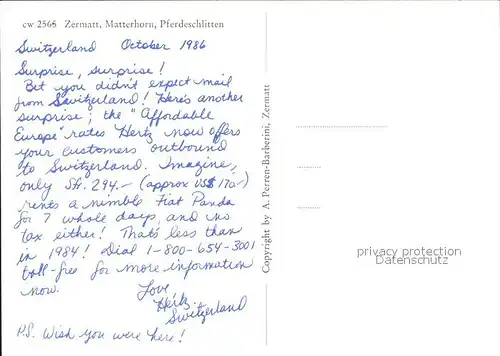 cw 2565 Zermatt, Matterhorn, Pferdeschlitten
Switzerland October 1986
Surprise, surprise!
Bet you didn't expect mail
from Switzerland! Here's another
surprise; the "Affordable
Europe" rates Hertz now offers
your customers outbound
to Switzerland. Imagine,
only Sfr. 294.- (approx US$ 170.-)
rents a nimble Fiat Panda
for 7 whole days, and no
tax either! That's less than
in 1984! Dial 1-800-654-3001
toll-free for more information
now.
Love
Hertz
Switzerland
P.S. Wish you were here!
Copyright by A. Perren-Barberini, Zermatt
privacy protection
Datenschutz